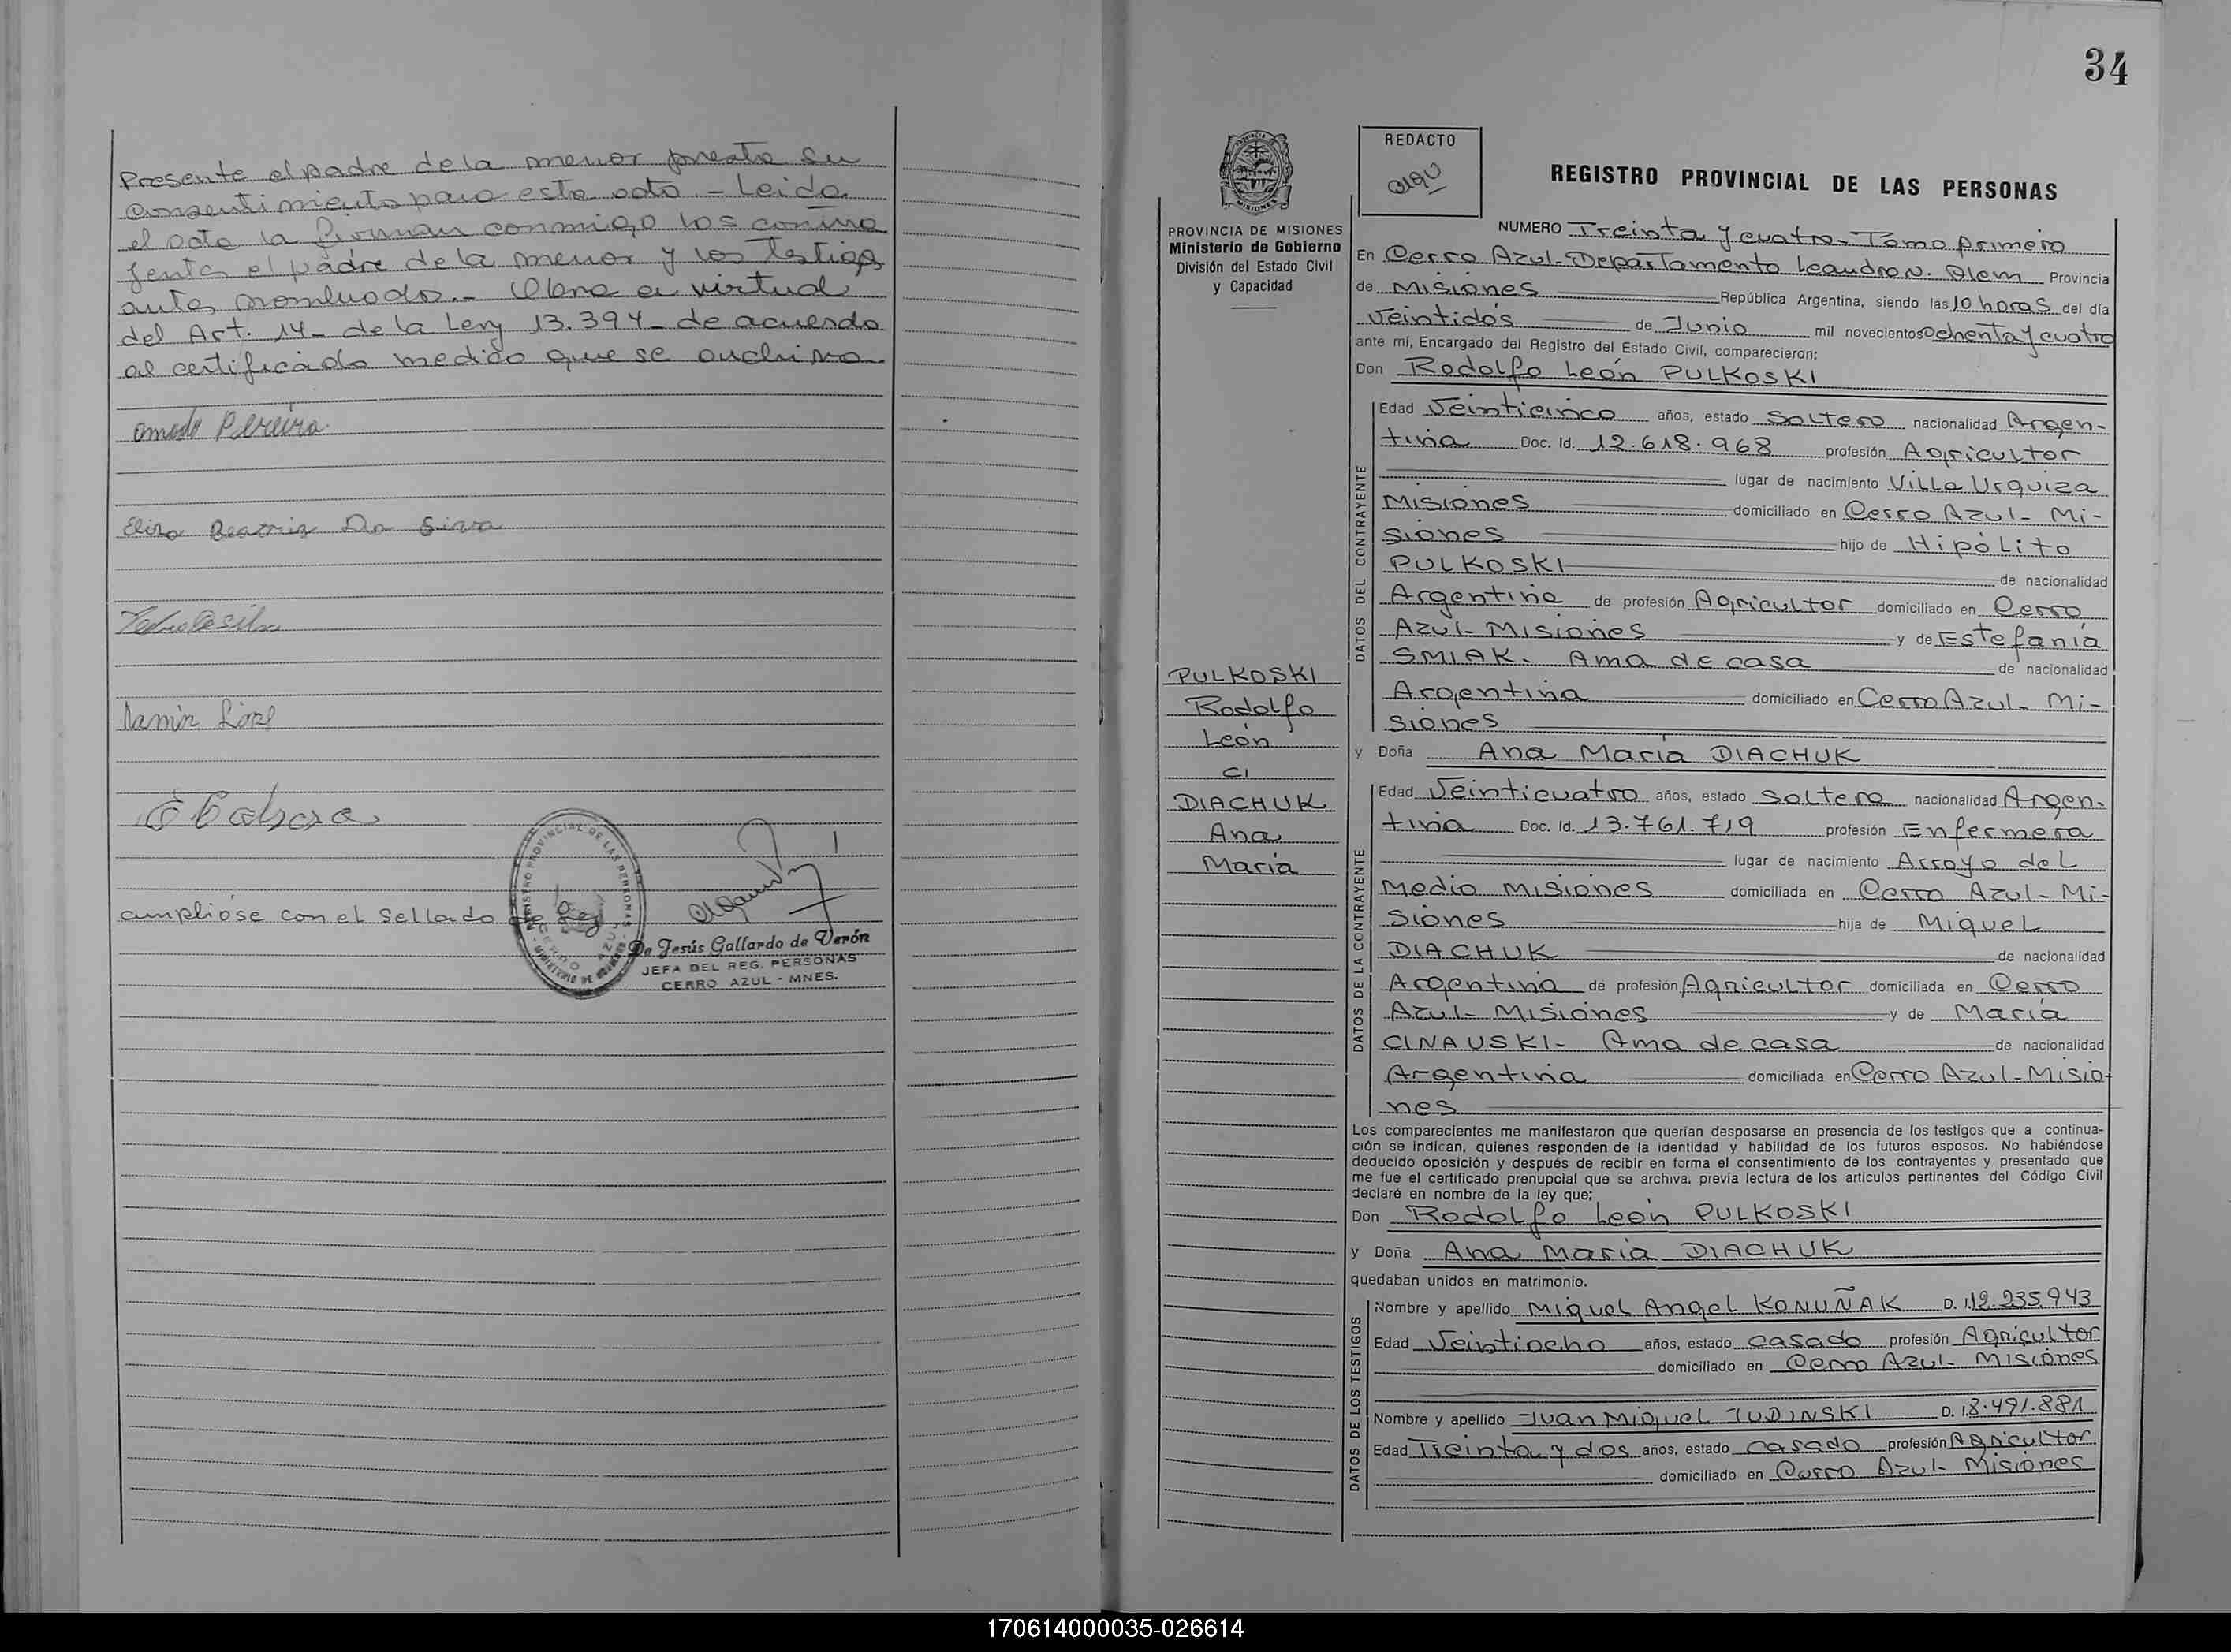 Presente el padre de la menor presta su
consentimiento para este acto - Leida
el acta la firman conmigo los contra
yentes el padre de la menor y los Testigos
antes nombrados.- Obra en virtud
del Art. 14- de la Ley 13.394- de acuerdo
al certificado medico que se archiva
Pereira
Beatriz Da Silva
Ramón
cumplióse con el sellado de Ley
REGISTRO PROVINCIAL DE LAS PERSONAS
CERRO AZUL
De Jesús Gallardo de Verón
JEFA DEL REG. PERSONAS
CERRO AZUL - MNES.
34
PROVINCIA DE MISIONES
Ministerio de Gobierno
División del Estado Civil
y Capacidad
PULKOSKI
Rodolfo
León
C/
DIACHUK
Ana
María
REDACTO
REGISTRO PROVINCIAL DE LAS PERSONAS
NUMERO Treinta y cuatro- Tomo primero
En Cerro Azul-Departamento Leandro N. Alem Provincia
de Misiones República Argentina, siendo las 10 horas del día
Veintidós de Junio mil novecientos Ochenta y cuatro
ante mí, Encargado del Registro del Estado Civil, comparecieron:
Don Rodolfo León PULKOSKI
DATOS DEL CONTRAYENTE
Edad Veinticinco años, estado Soltero nacionalidad Argen-
tina Doc. Id. 12.618.968 profesión Agricultor
lugar de nacimiento Villa Urquiza
Misiones domiciliado en Cerro Azul- Mi-
siones hijo de Hipólito
PULKOSKI de nacionalidad
Argentina de profesión Agricultor domiciliado en Cerro
Azul- Misiones y de Estefanía
SMIAK. Ama de casa de nacionalidad
Argentina domiciliado en Cerro Azul- Mi-
siones
y Doña Ana María DIACHUK
DATOS DE LA CONTRAYENTE
Edad Veinticuatro años, estado Soltera nacionalidad Argen-
tina Doc. Id. 13.761.719 profesión Enfermera
lugar de nacimiento Arroyo del
Medio Misiones domiciliada en Cerro Azul- Mi-
siones hija de Miguel
DIACHUK de nacionalidad
Argentina de profesión Agricultor domiciliada en Cerro
Azul- Misiones y de María
CINAUSKI- Ama de casa de nacionalidad
Argentina domiciliada en Cerro Azul-Misio-
nes
Los comparecientes me manifestaron que querían desposarse en presencia de los testigos que a continua-
ción se indican, quienes responden de la identidad y habilidad de los futuros esposos. No habiéndose
deducido oposición y después de recibir en forma el consentimiento de los contrayentes y presentado que
me fue el certificado prenupcial que se archiva, previa lectura de los artículos pertinentes del Código Civil
declaré en nombre de la ley que;
Don Rodolfo León PULKOSKI
y Doña Ana María DIACHUK
quedaban unidos en matrimonio.
DATOS DE LOS TESTIGOS
Nombre y apellido Miguel Angel KONUÑAK D. I. 12.235.943
Edad Veintiocho años, estado casado profesión Agricultor
domiciliado en Cerro Azul- Misiones
Nombre y apellido Juan Miguel JUDINSKI D. I. 8.491.881
Edad Treinta y dos años, estado casado profesión Agricultor
domiciliado en Cerro Azul- Misiones
170614000035-026614